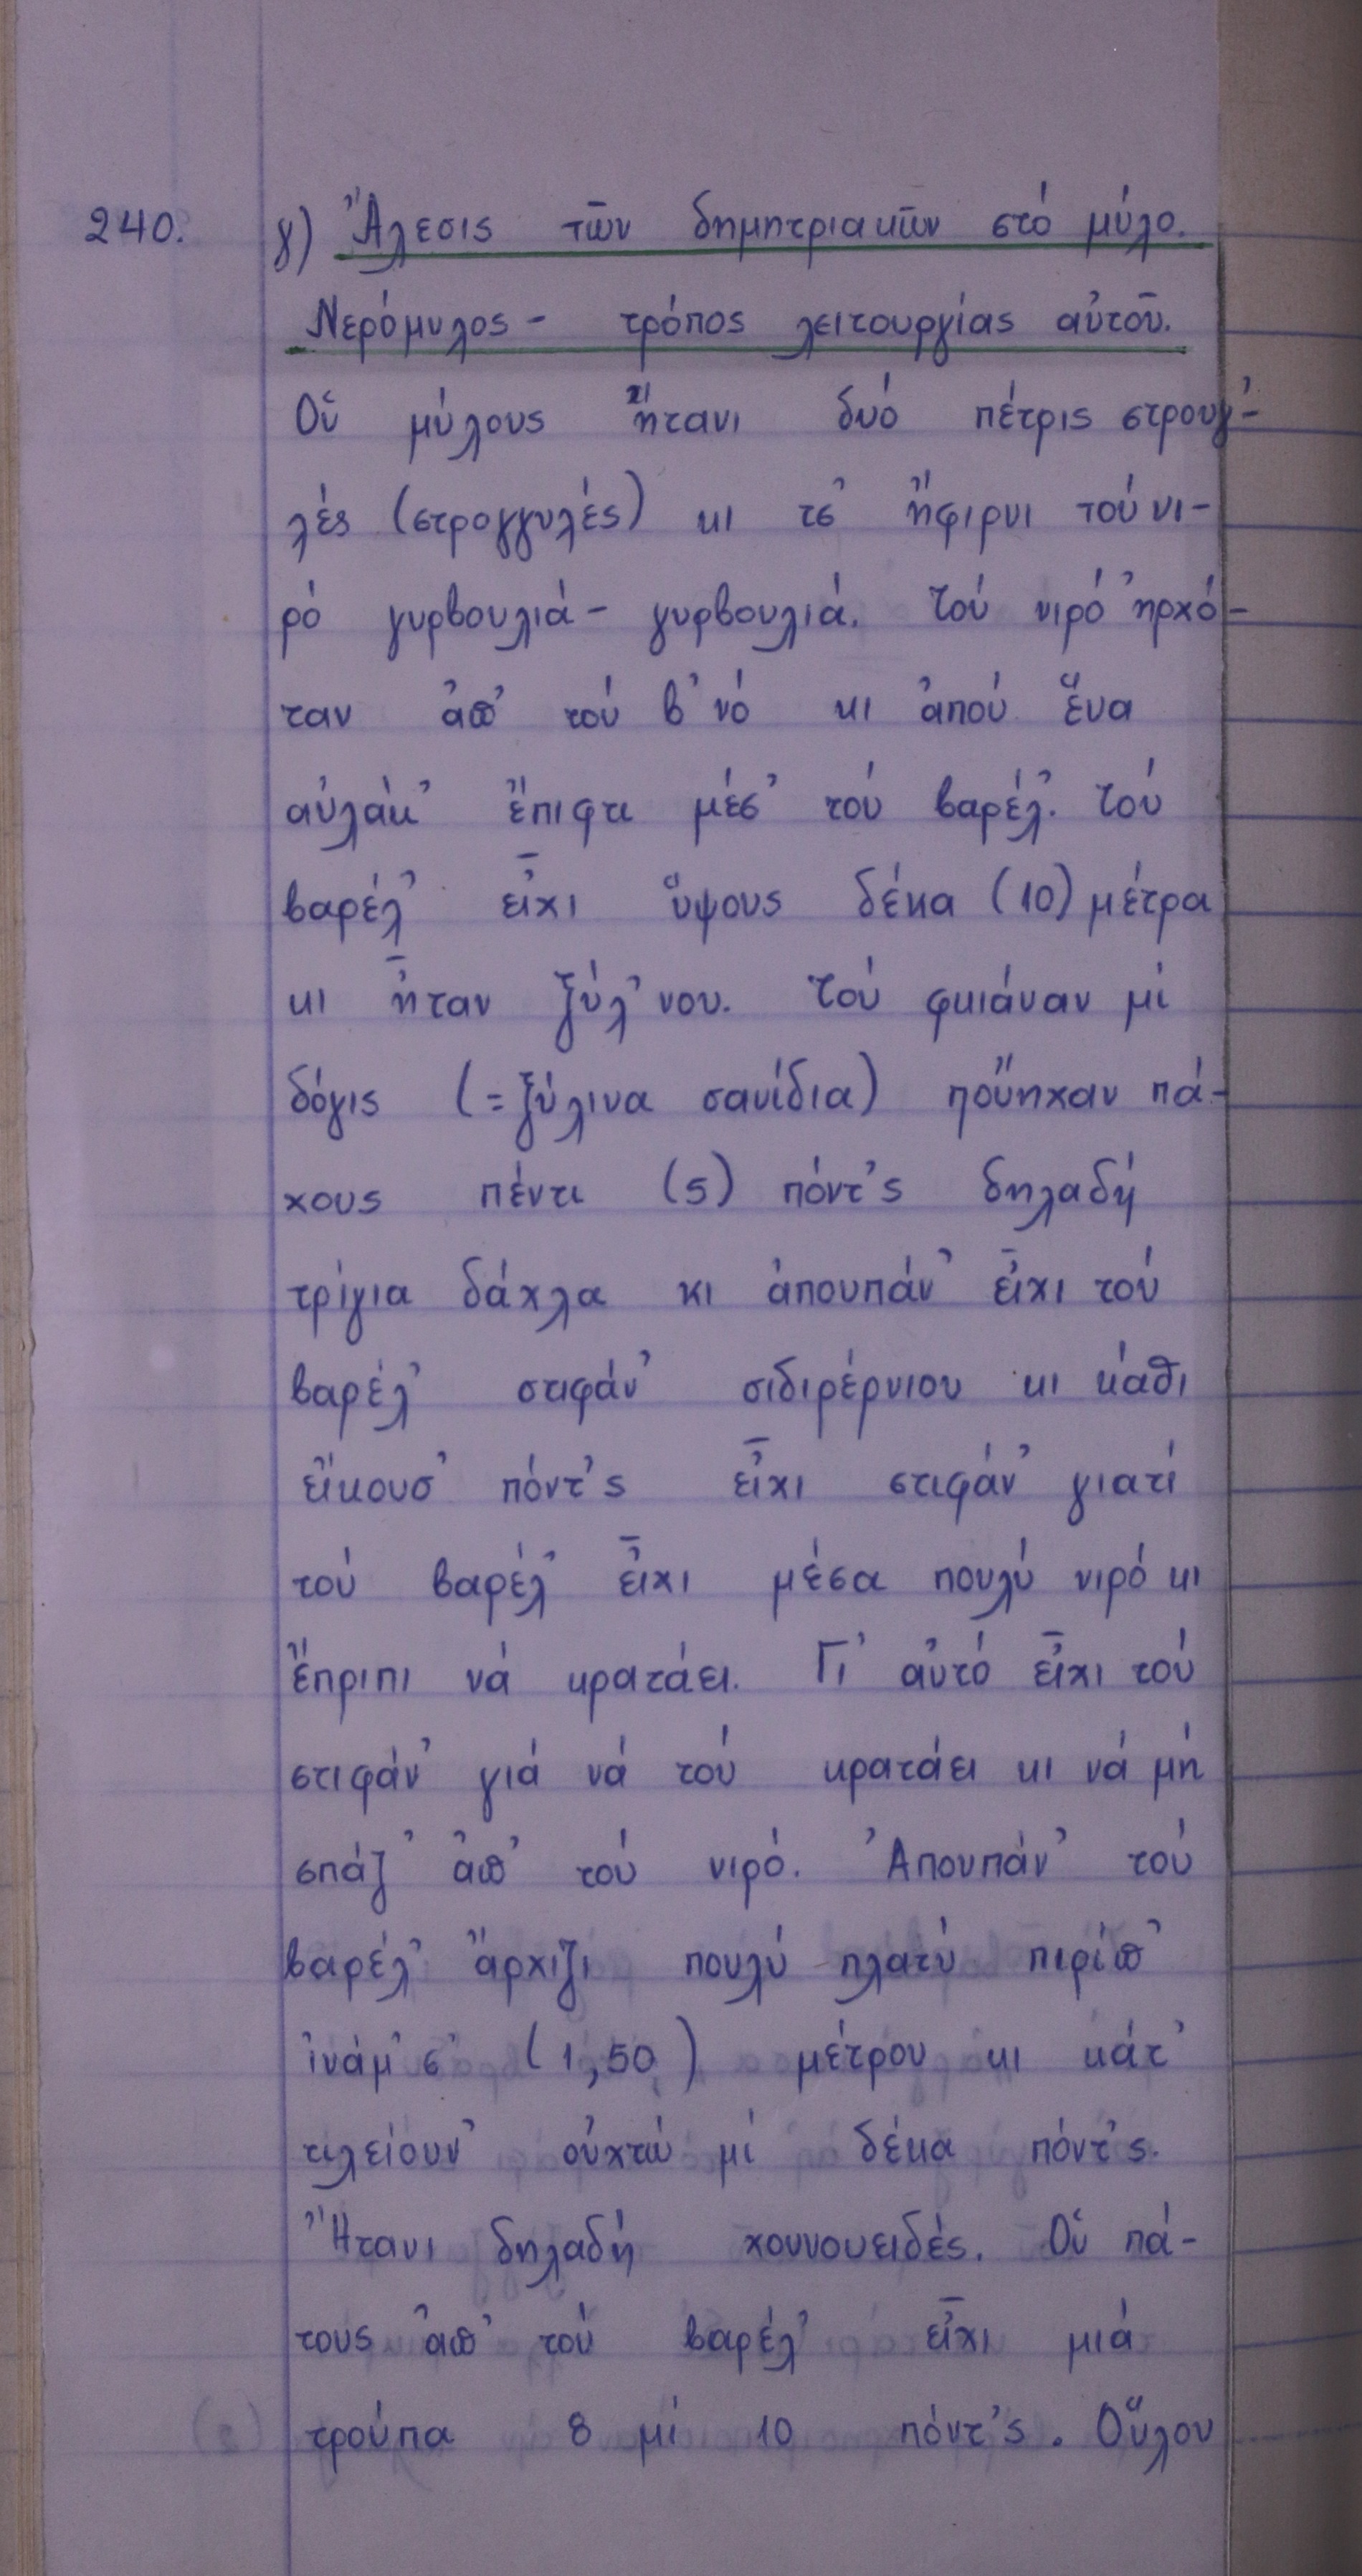 240. γ) Ἄλεσις τῶν δημητριακῶν στό μύλο.
Νερόμυλος - τρόπος λειτουργίας αὐτοῦ.
Οὑ μύλους ἤτανι δυό πέτρις στρουγ'-
λές (στρογγυλές) κι τσ' ἤφιρνι τού νι-
ρό γυρβουλιά - γυρβουλιά. Τού νιρό ἠρχό-
ταν ἀπ' τού β'νό κι ἀπού ἕνα
αὐλάκ' ἔπιφτι μέσ' τού βαρέλ'. Τού
βαρέλ' εἶχι ὕψους δέκα (10) μέτρα
κι ἦταν ξύλ'νου. Τού φκιάναν μί
δόγις (= ξύλινα σανίδια) πούηχαν πά-
χους πέντι (5) πόντ'ς δηλαδή
τρίγια δάχλα κι ἀπουπάν' εἶχι τού
βαρέλ' στιφάν' σιδιρέρνιου κι κάθι
εἴκουσ' πόντ'ς εἶχι στιφάν' γιατί
τού βαρέλ' εἶχι μέσα πουλύ νιρό κι
ἔπριπι νά κρατάει. Γι' αὐτό εἶχι τού
στιφάν' γιά νά τού κρατάει κι νά μή
σπάζ' ἀπ' τού νιρό. Ἀπουπάν' τού
βαρέλ' ἄρχιζι πουλύ πλατύ πιρίπ'
ἰνάμ'σ' (1,50) μέτρου κι κάτ'
τιλείουν' οὐχτώ μί δέκα πόντ'ς.
Ἤτανι δηλαδή χουνουειδές. Οὑ πά-
τους ἀπ' τού βαρέλ' εἶχι μιά
τρούπα 8 μί 10 πόντ'ς. Οὕλου